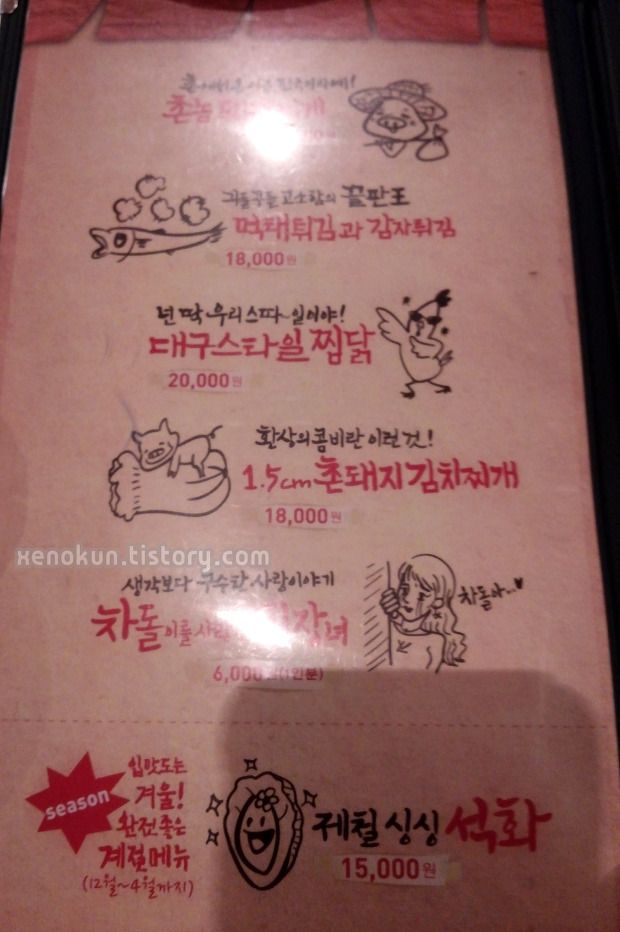 촌놈
귀돌쿵돌 고소함의 끝판표
먹태튀김과 감자튀김
18,000원
넌 딱 우리스따~일이야!
대구스타일 찜닭
20,000원
환상의 콤비란 이런 것!
1.5cm 촌돼지 김치찌개
18,000원
xenokun.tistory.com
생각보다 구수한 사랑이야기
차돌이를 사랑
차돌아...♥
6,000원(1인분)
season
입맛도는
겨울!
완전좋은
계절메뉴
(12월~4월까지)
제철 싱싱 석화
15,000원